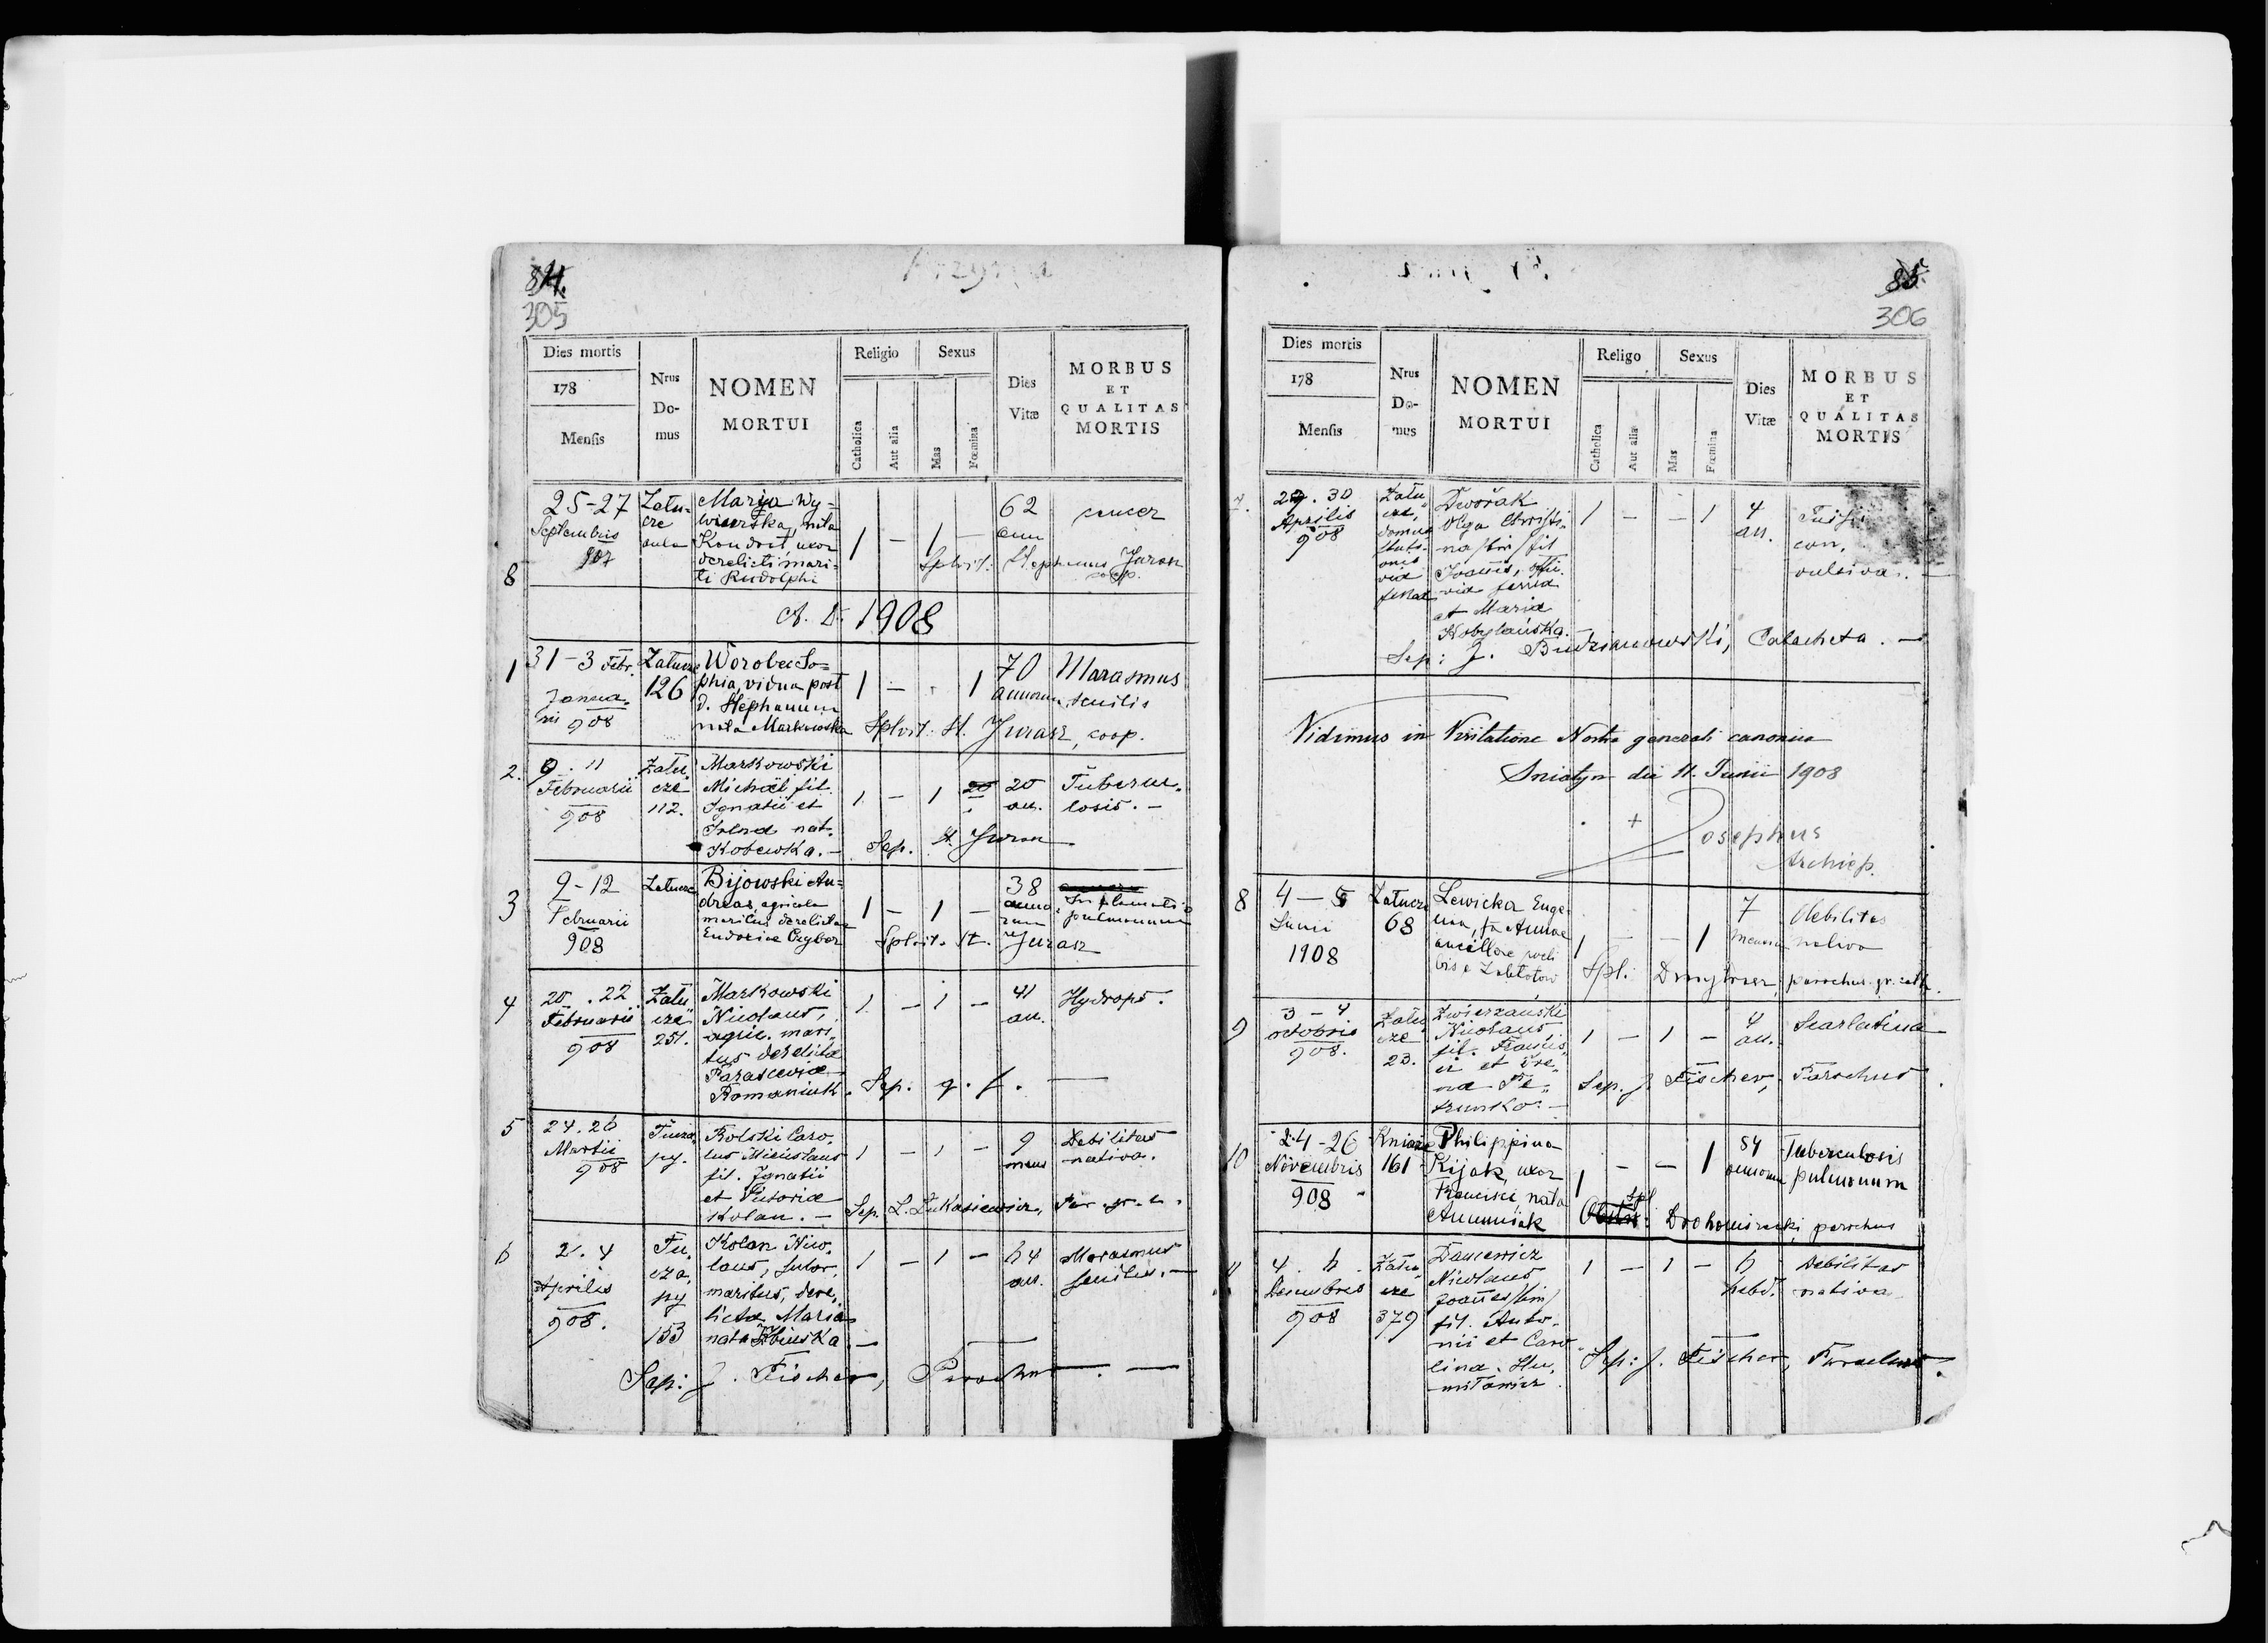 84.
305
Dies mortis
178
Mensis
Nrus
Do-
mus
NOMEN
MORTUI
Religio
Catholica
Aut alia
Sexus
Mas
Fœmina
Dies
Vitæ
MORBUS
ET
QUALITAS
MORTIS
8
25-27
Septembris
907
Zału-
cze
Marya Wy-
nata
uxor
derelicti mari-
ti Rudolphi
1 - 1 -
62
ann
cancer
Splvit: Stephanus Jurasz
coop.
A. D. 1908
1
31-3 Febr.
Janua-
rii 908
Załucze
126
Worobec So-
phia, vidua post
d. Stephanum
nata Markowska
1 - . 1
70
annorum
Marasmus
senilis
Splvit. St. Jurasz, coop.
2.
9. 11
Februarii
908
Zału-
cze
112.
Markowski
Michaël fil.
Ignatii et
nat.
1 - 1
20
an.
Tubercu-
losis. -
Sep. St. Jurasz
3
9-12
Februarii
908
Załucze
Bijowski An-
dreas, agricola
maritus derelictae
Eudociae
1 - 1 -
38
anno-
rum
pulmonum
Splvit. St. Jurasz
4
20. 22
Februarii
908
Zału-
cze
251.
Markowski
Nicolaus,
agric. mari-
tus derelicta
Parascevia
Romaniuk.
1 - 1 -
41
an.
Hydrops.
Sep. g. f. -
5
24. 26
Martii
908
Tucza-
py.
Rolski Caro-
lus
fil. Ignatii
et Victoria
Kolan. -
1 - 1 -
9
mens
Debilitas
nativa.
Sep. L. Łukasiewicz, Par. gr. c.
6
2. 4
Aprilis
908.
Tu-
cza-
py
153
Kolan Nico-
laus, sutor,
maritus, dere-
licta Maria
nata
1 - 1 -
64
an.
Marasmus
senilis. -
Sep: J. Fischer, Parochus. -
85.
306
Dies mortis
178
Mensis
Nrus
Do-
mus
NOMEN
MORTUI
Religo
Catholica
Aut alia
Sexus
Mas
Fœmina
Dies
Vitæ
MORBUS
ET
QUALITAS
MORTIS
7.
29. 30
Aprilis
908
Zału-
cze,
domus
stati-
onis
via
ferrea
Dworak
Olga Christi-
na /bin/ fil
Joannis, offi.
via ferrea
et Maria
Kobylańska.
1 - - 1
4
an.
Tussis
con-
vulsiva. -
Sep: J. Budzianowski, Catecheta. -
Vidimus in Visitatione Nostra generali canonica
Sniatyn die 11. Junii 1908
+
Josephus
Archiep.
8
4 - 5
Junii
1908
Załucze
68
Lewicka Euge-
nia, fa Annae
ancillae coeli
bis e Zabłotow
1 - - 1
7
mensium
Debilitas
nativa
Spl: Dmytrasz, parochus gr. cath.
9
3 - 4
octobris
908.
Zału-
cze
23.
Zwierzanski
Nicolaus
fil. Francis-
ci et Ire-
na Pe-
1 - 1 -
4
an.
Scarlatina
Sep. J. Fischer, Parochus.
10
24-26
Novembris
908
Kniaże
161
Philippina
Kijak, uxor
Francisci nata
1 - - 1
54
annorum
Tuberculosis
pulmonum
Spl
Drohomirecki, parochus
11
4. 6.
Decembris
908
Zału-
cze
379
Danewicz
Nicolaus
Joannes /bin/
fil. Anto-
nii et Caro-
lina
1 - 1 -
6
hebd.
Debilitas
nativa
Sep: J. Fischer, Parochus.